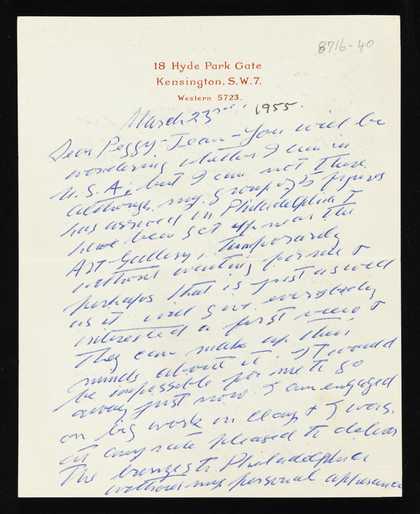 8716-40
18 Hyde Park Gate
Kensington. S.W.7.
Western 5723.
March 23rd, 1955.
Dear Peggy-Jean - You will be
wondering whether I am in
U.S.A; but I am not there
although my group of figures
has arrived in Philadelphia &
have been set up near the
Art-Gallery, temporarily
without waiting for me &
perhaps that is just as well
as it will give everybody
interested a first view &
they can make up their
minds about it. It would
be impossible for me to go
away just now I am engaged
on big work in clay & I was
at any rate pleased to deliver
the bronzes to Philadelphia
without my personal appearance